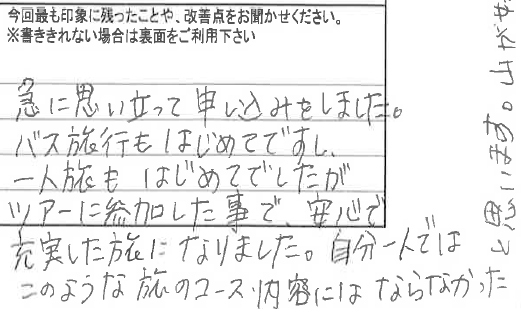 今回最も印象に残ったことや、改善点をお聞かせください。
※書ききれない場合は裏面をご利用下さい
急に思い立って申し込みをしました。
バス旅行もはじめてですし、
一人旅もはじめてでしたが
ツアーに参加した事で、安心で
充実した旅になりました。自分一人では
このような旅のコース・内容にはならなかった
と思います。山が好